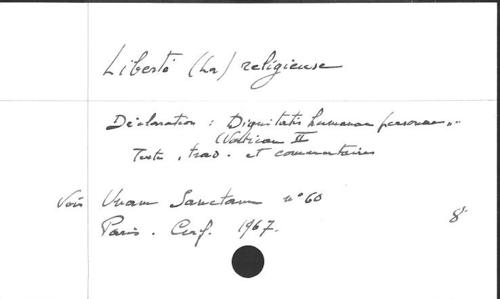 Liberté (La) religieuse
Déclaration : Dignitatis humanae personae "
(Vatican II
Texte, trad. et commentaires
Voir Unam Sanctam n° 60
Paris. Cerf. 1967.
8°